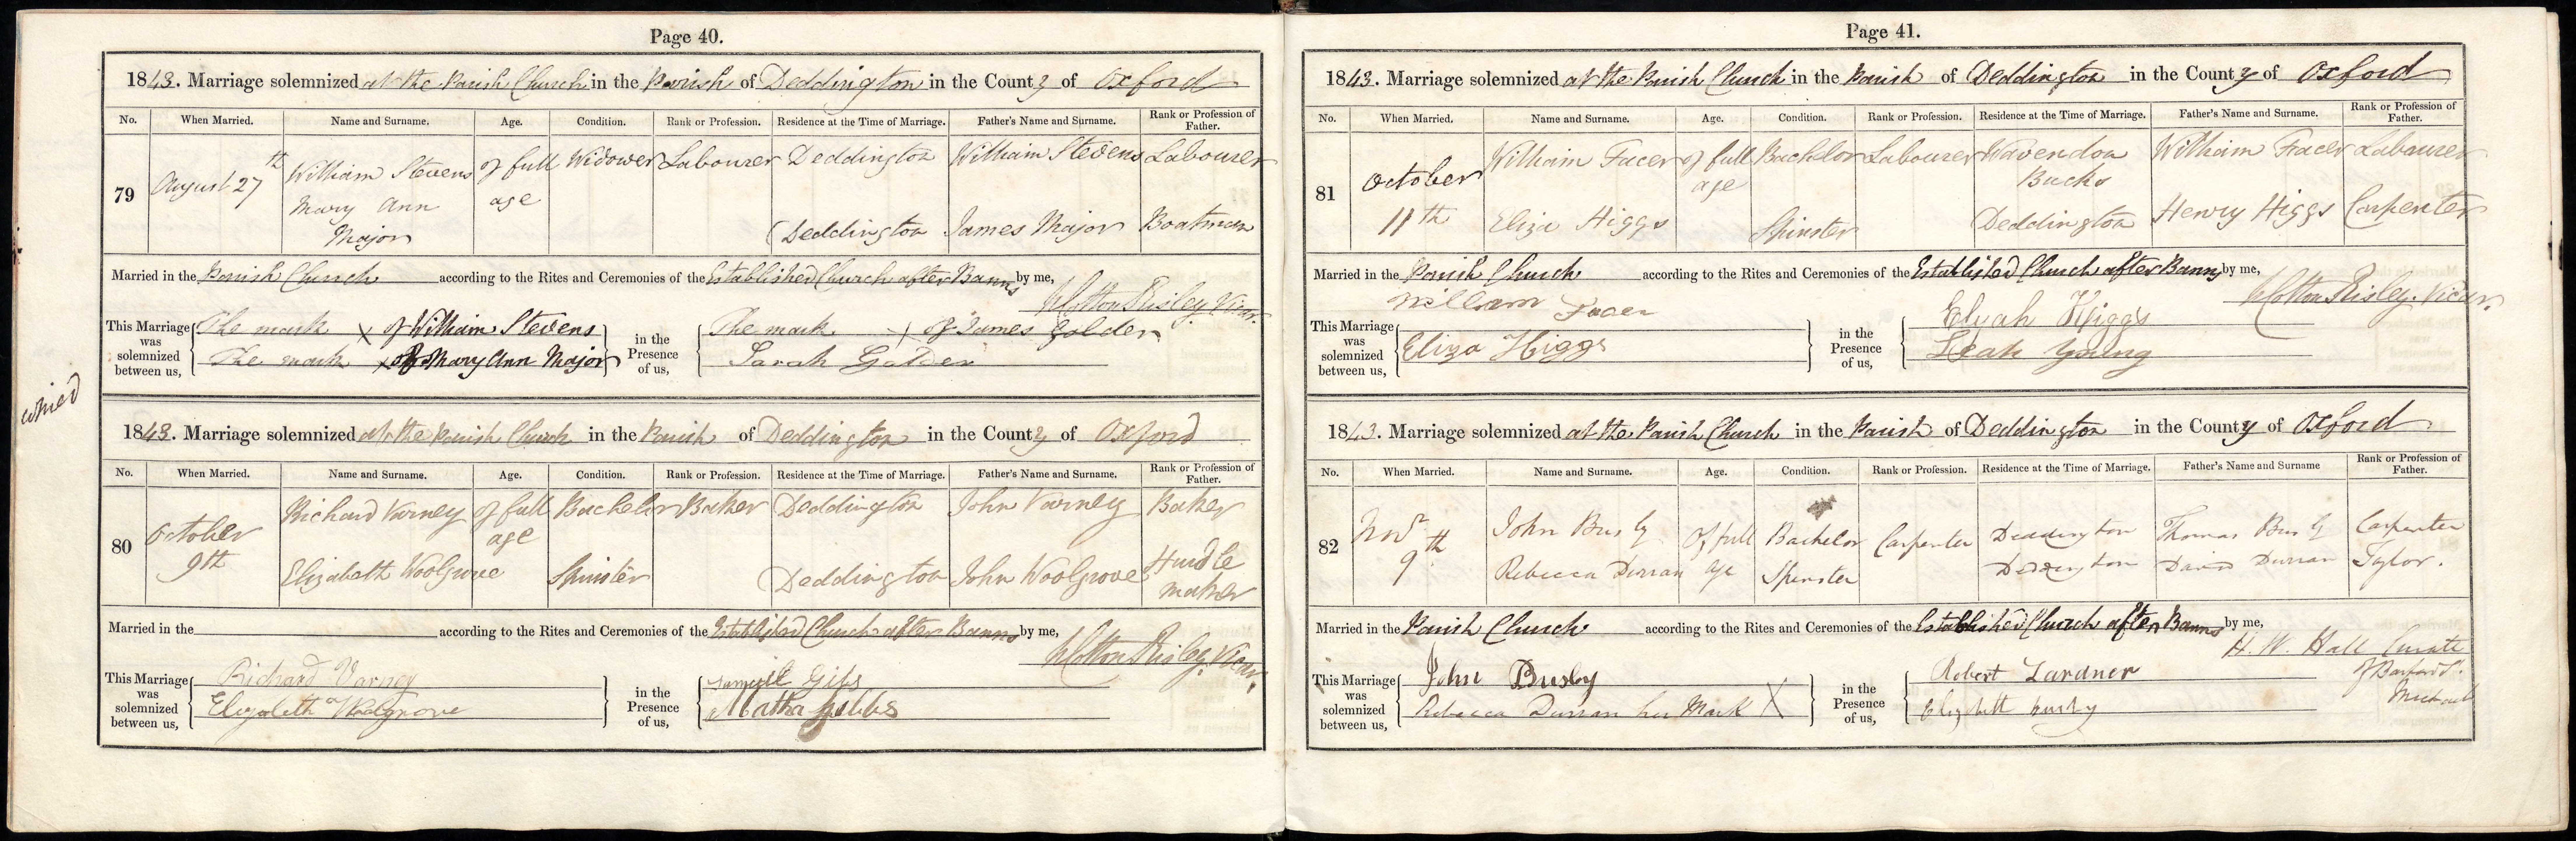 Page 40.
1843. Marriage solemnized at the Parish Church in the Parish of Deddington in the County of Oxford
No. When Married. Name and Surname. Age. Condition. Rank or Profession. Residence at the Time of Marriage. Father's Name and Surname. Rank or Profession of Father.
79 August 27th William Stevens of full age Widower Labourer Deddington William Stevens Labourer
Mary Ann Major Deddington James Major Boatman
Married in the Parish Church according to the Rites and Ceremonies of the Established Church after Banns by me,
W Cotton Risley. Vicar.
This Marriage was solemnized between us, The mark X of William Stevens
The mark X of Mary Ann Major
in the Presence of us, The mark X of James Golder
Sarah Golder
copied
1843. Marriage solemnized at the Parish Church in the Parish of Deddington in the County of Oxford
No. When Married. Name and Surname. Age. Condition. Rank or Profession. Residence at the Time of Marriage. Father's Name and Surname. Rank or Profession of Father.
80 October 9th Richard Varney of full age Bachelor Baker Deddington John Varney Baker
Elizabeth Woolgrove Spinster Deddington John Woolgrove Hurdle maker
Married in the according to the Rites and Ceremonies of the Established Church after Banns by me,
W Cotton Risley. Vicar.
This Marriage was solemnized between us, Richard Varney
Elizabeth Woolgrove
in the Presence of us,
Matha Gibbs
Page 41.
1843. Marriage solemnized at the Parish Church in the Parish of Deddington in the County of Oxford
No. When Married. Name and Surname. Age. Condition. Rank or Profession. Residence at the Time of Marriage. Father's Name and Surname. Rank or Profession of Father.
81 October 11th William Facer of full age Bachelor Labourer Wavendon Bucks William Facer Labourer
Eliza Higgs Spinster Deddington Henry Higgs Carpenter
Married in the Parish Church according to the Rites and Ceremonies of the Established Church after Banns by me,
W Cotton Risley. Vicar.
This Marriage was solemnized between us, William Facer
Eliza Higgs
in the Presence of us, Elijah Higgs
Leah Young
1843. Marriage solemnized at the Parish Church in the Parish of Deddington in the County of Oxford
No. When Married. Name and Surname. Age. Condition. Rank or Profession. Residence at the Time of Marriage. Father's Name and Surname Rank or Profession of Father.
82 Novr 9th John Busby Of full age Bachelor Carpenter Deddington Thomas Busby Carpenter
Rebecca Durran Spinster Deddington David Durran Taylor.
Married in the Parish Church according to the Rites and Ceremonies of the Established Church after Banns by me,
H. W. Hall Curate
of Barford St. Michael
This Marriage was solemnized between us, John Busby
Rebecca Durran her Mark X
in the Presence of us, Robert Lardner
Elizabeth Busby